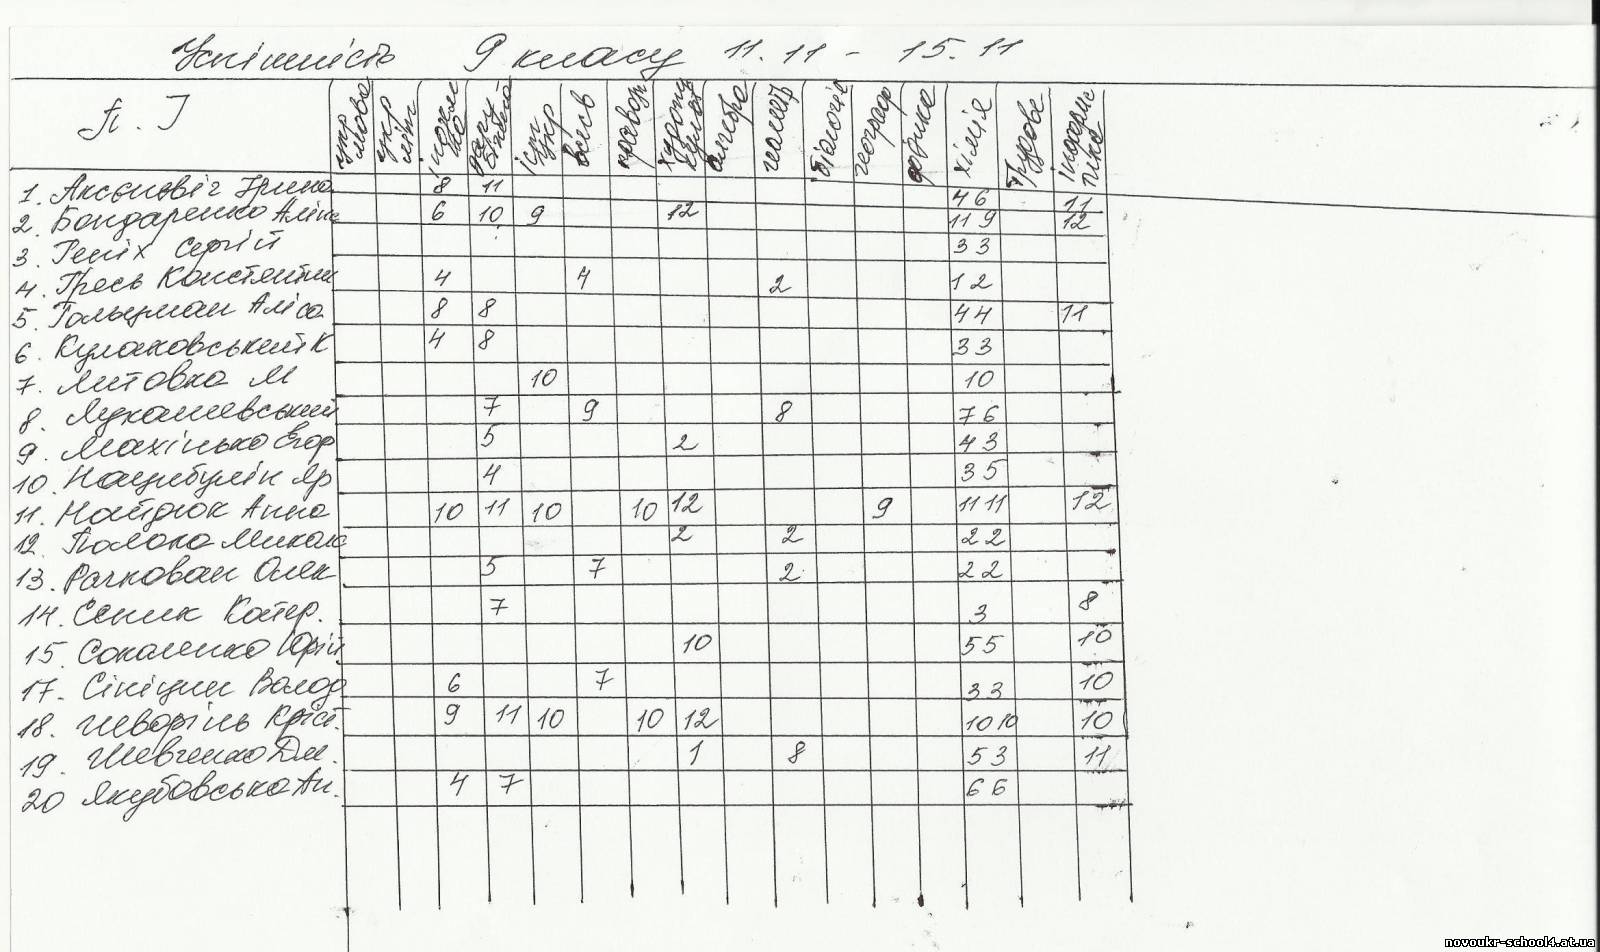 Успішність 9 класу 11.11 - 15.11
П. І укр мова укр літ іст укр всесв правозн алгебра геометр біологія географ фізика хімія Трудове
1. Аксьновіч Ірина 8 11 4 6 11
2. Бондаренко Аліна 6 10 9 12 11 9 12
3. Геніх Сергій 3 3
4. Гресь Констянтин 4 4 2 1 2
5. Гольцман Аліса 8 8 4 4 11
6. Кулаковський К 4 8 3 3
7. Литовка М 10 10
8. Лукашевський 7 9 8 7 6
9. Махінько Єгор 5 2 4 3
10. Нацибулін Яр 4 3 5
11. Найдюк Анна 10 11 10 10 12 9 11 11 12
12. Полока Микола 2 2 2 2
13. Рачкован Олек 5 7 2 2 2
14. Сеник Катер. 7 3 8
15. Сокаленко Юрій 10 5 5 10
17. Сініцин Волод 6 7 3 3 10
18. Шворінь Кріст. 9 11 10 10 12 10 10 10
19. Шевченко Дм. 1 8 5 3 11
20 Якубовська Ан. 4 7 6 6
novoukr-school4.at.ua